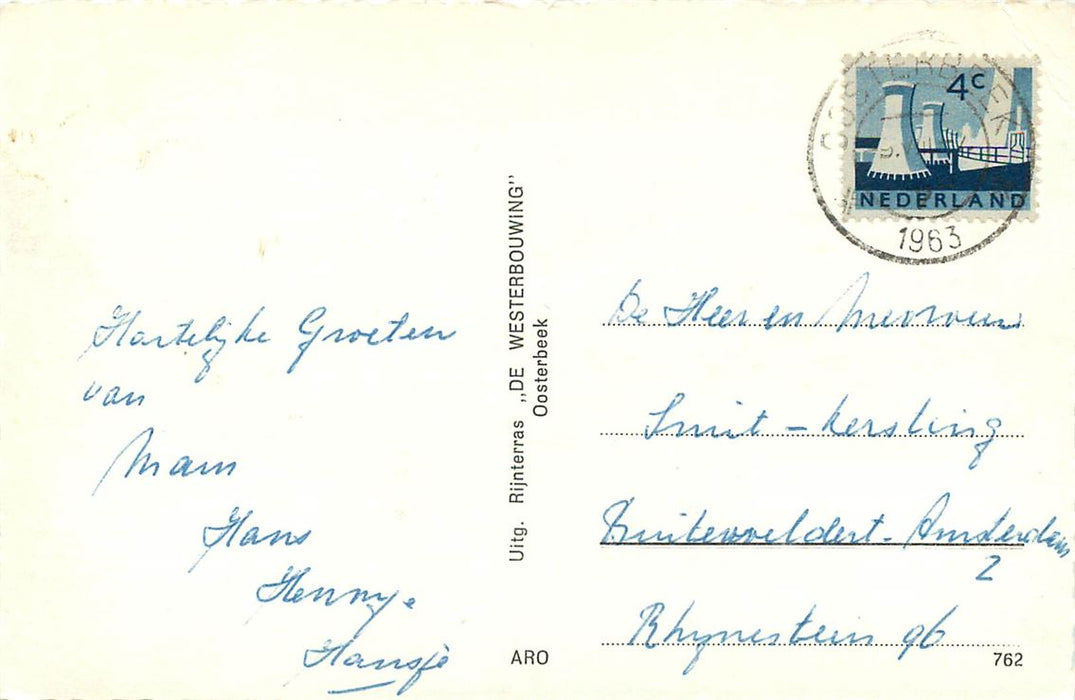 Hartelijke Groeten
van
Mam
Hans
Hennye
Hansje
Uitg. Rijnterras „DE WESTERBOUWING"
Oosterbeek
ARO
OOSTERBEEK
1963
4c
NEDERLAND
De Heer en Mevrouw
Smit - Kersting
Buitenveldert - Amsterdam
Z
Rhynestein 96
762